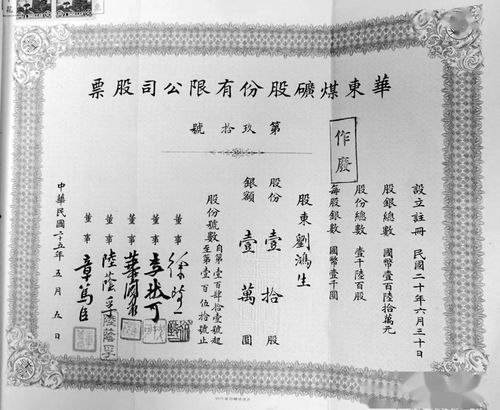 華東煤礦股份有限公司股票
第玖拾號
作廢
設立註冊 民國二十年六月三十日
股銀總數 國幣壹百陸拾萬元
股份總數 壹千陸百股
每股銀數 國幣壹千圓
股東劉鴻生
股份壹拾股
銀額壹萬圓
股份號數自第壹百肆拾壹號起至第壹百伍拾號止
董事
董事
董事
董事 陸蔭孚
董事 章篤臣
中華民國二十五年五月五日